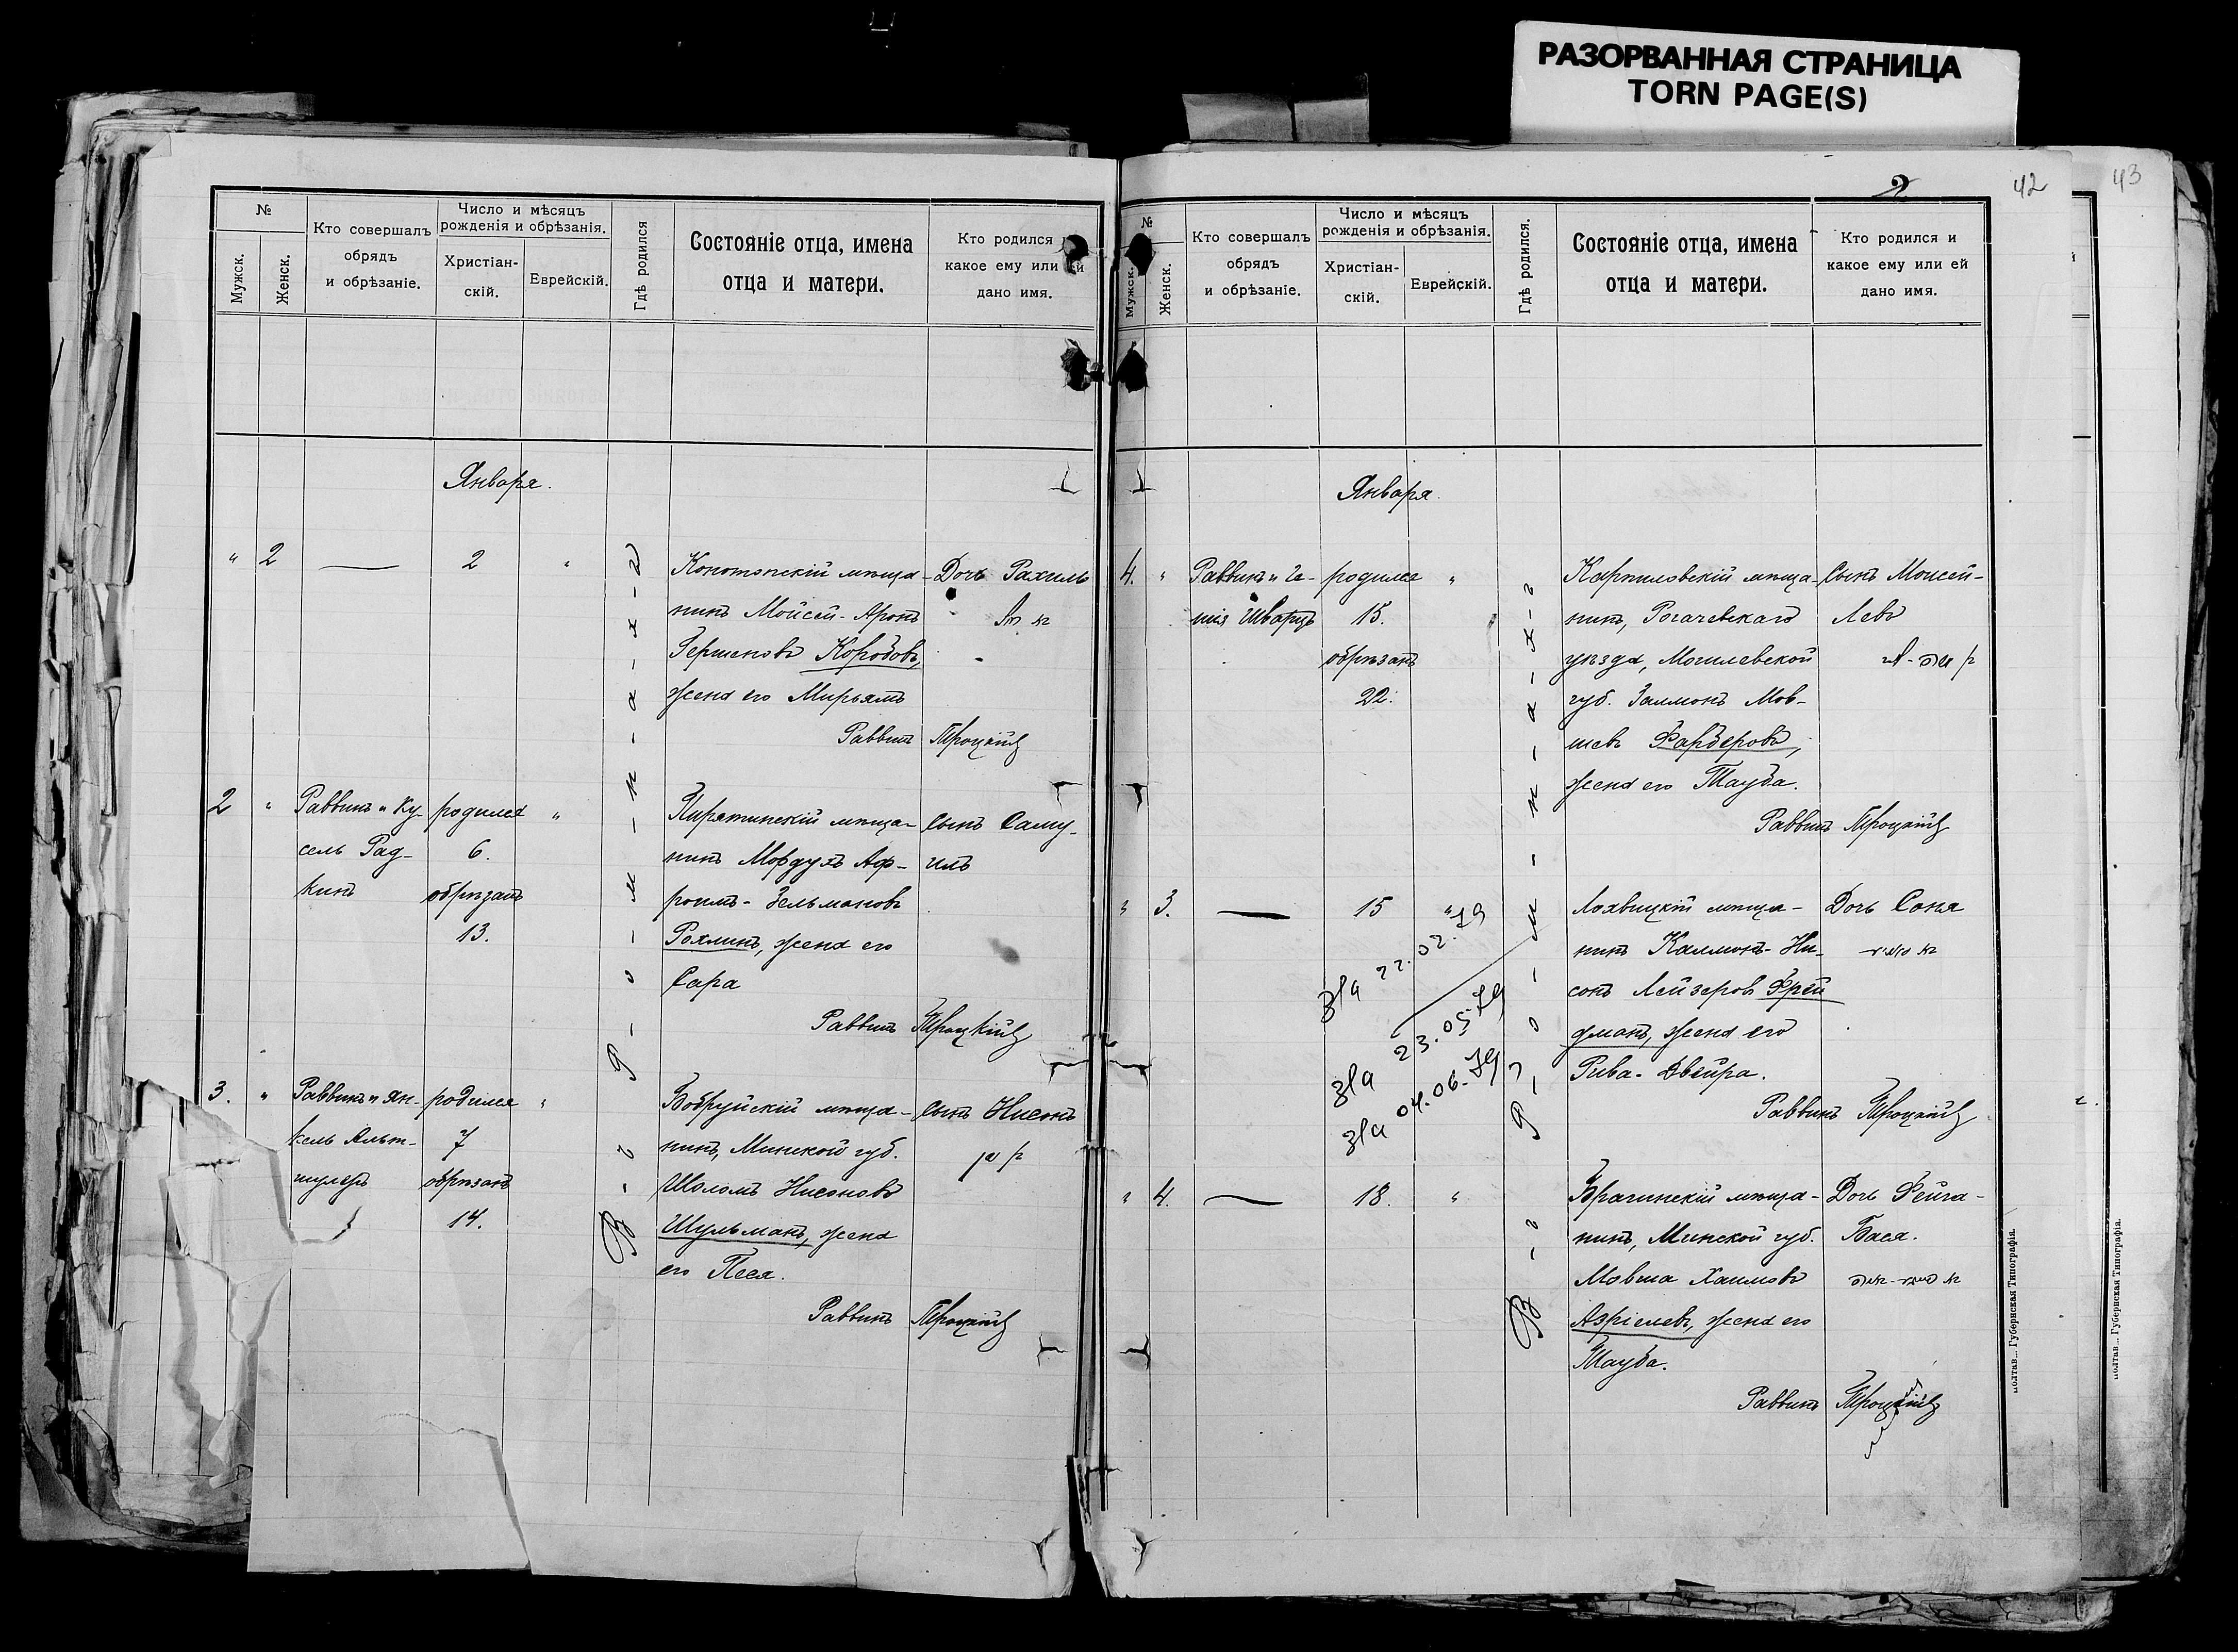 РАЗОРВАННАЯ СТРАНИЦА
TORN PAGE(S)
2
42
43
№
Мужск.
Женск.
Кто совершалъ
обрядъ
и обрѣзаніе.
Число и мѣсяцъ
рожденія и обрѣзанія.
Христіан-
скій.
Еврейскій.
Гдѣ родился
Состояніе отца, имена
отца и матери.
Кто родился
какое ему или ей
дано имя.
Января.
" 2 — 2 "
Конотопскій мѣща-
нинъ Мойсей-Аронъ
Гершоновъ Коробовъ,
жена его Мирьямъ
Дочь Рахиль
Раввинъ Троцкій
2 " Раввинъ и Ку-
сель Рад-
кинъ
родился
6.
обрѣзанъ
13.
"
Пирятинскій мѣща-
нинъ Мордухъ Аф-
роимъ-Зельмановъ
Рохлинъ, жена его
Сара
Сынъ Саму-
илъ
Раввинъ Троцкій
3. " Раввинъ и Ян-
кель Альт-
шулеръ
родился
7
обрѣзанъ
14.
"
Бобруйскій мѣща-
нинъ, Минской губ.
Шоломъ Нисоновъ
Шульманъ, жена
его Песя.
Сынъ Нисонъ
Раввинъ Троцкій
№
Мужск.
Женск.
Кто совершалъ
обрядъ
и обрѣзаніе.
Число и мѣсяцъ
рожденія и обрѣзанія.
Христіан-
скій.
Еврейскій.
Гдѣ родился.
Состояніе отца, имена
отца и матери.
Кто родился и
какое ему или ей
дано имя.
Января.
4. " Раввинъ и
Шварцъ
родился
15.
обрѣзанъ
22.
"
Карпиловскій мѣща-
нинъ, Рогачевскаго
уѣзда, Могилевской
губ. Залмонъ Мов-
шевъ Фарберовъ,
жена его Тауба.
Сынъ Моисей-
Левъ
Раввинъ Троцкій
" 3. — 15 "
з/а 22.02.79
з/а 23.05.79
з/а 04.06.79
Лохвицкій мѣща-
нинъ Калмонъ-Ни-
сонъ Лейзеровъ Фрей
дманъ, жена его
Рива-Двейра.
Дочь Соня
Раввинъ Троцкій
" 4. — 18. "
Брагинскій мѣща-
нинъ, Минской губ.
Мовша Хаимовъ
Азріелевъ, жена его
Тауба.
Дочь Фейга-
Бася.
Раввинъ Троцкій
Губернская Типографія.
Губернская Типографія.